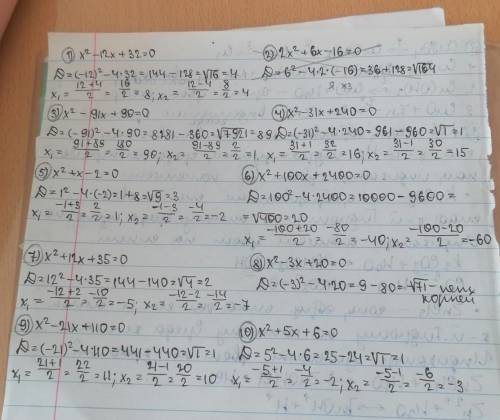 1) x²-12x+32=0
D=(-12)²-4·32=144-128=√16=4
x₁=12+4/2=16/2=8; x₂=12-4/2=8/2=4
2) 2x²+6x-16=0
D=6²-4·2·(-16)=36+128=√164
Я хз
3) x²-91x+90=0
D=(-91)²-4·90=8281-360=√7921=89
x₁=91+89/2=180/2=90; x₂=91-89/2=2/2=1
4) x²-31x+240=0
D=(-31)²-4·240=961-960=√1=1
x₁=31+1/2=32/2=16; x₂=31-1/2=30/2=15
5) x²+x-2=0
D=1²-4·(-2)=1+8=√9=3
x₁=-1+3/2=2/2=1; x₂=-1-3/2=-4/2=-2
6) x²+100x+2400=0
D=100²-4·2400=10000-9600=
=√400=20
x₁=-100+20/2=-80/2=-40; x₂=-100-20/2=-60
7) x²+12x+35=0
D=12²-4·35=144-140=√4=2
x₁=-12+2/2=-10/2=-5; x₂=-12-2/2=-14/2=-7
8) x²-3x+20=0
D=(-3)²-4·20=9-80=√71-нет
корней
9) x²-21x+110=0
D=(-21)²-4·110=441-440=√1=1
x₁=21+1/2=22/2=11; x₂=21-1/2=20/2=10
10) x²+5x+6=0
D=5²-4·6=25-24=√1=1
x₁=-5+1/2=-4/2=-2; x₂=-5-1/2=-6/2=-3